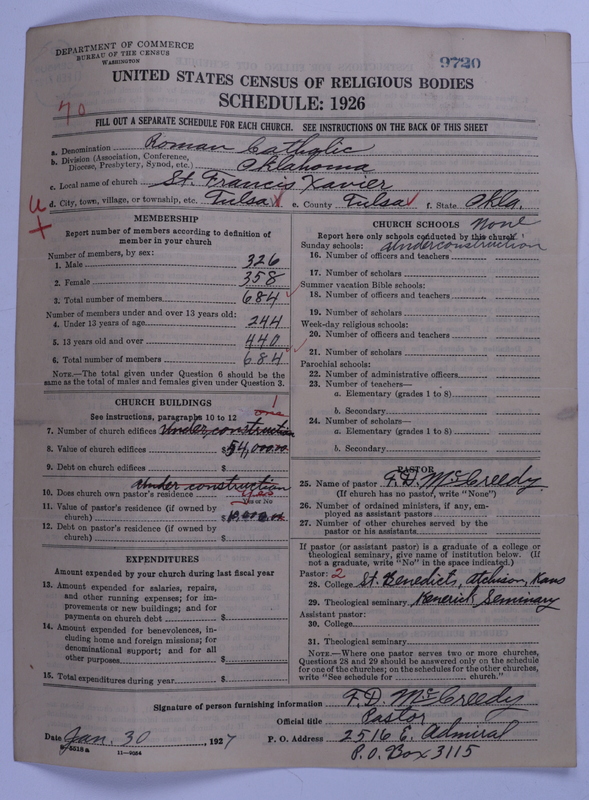 DEPARTMENT OF COMMERCE
BUREAU OF THE CENSUS
WASHINGTON
9720
UNITED STATES CENSUS OF RELIGIOUS BODIES
SCHEDULE: 1926
70
FILL OUT A SEPARATE SCHEDULE FOR EACH CHURCH. SEE INSTRUCTIONS ON THE BACK OF THIS SHEET
a. Denomination Roman Catholic
b. Division (Association, Conference, Diocese, Presbytery, Synod, etc.) Oklahoma
c. Local name of church St. Francis Xavier
d. City, town, village, or township, etc. Tulsa e. County Tulsa f. State Okla.
MEMBERSHIP
Report number of members according to definition of
member in your church
Number of members, by sex:
1. Male 326
2. Female 358
3. Total number of members 684
Number of members under and over 13 years old:
4. Under 13 years of age 244
5. 13 years old and over 440
6. Total number of members 684
NOTE.—The total given under Question 6 should be the
same as the total of males and females given under Question 3.
CHURCH BUILDINGS
See instructions, paragraphs 10 to 12
one
7. Number of church edifices under construction
8. Value of church edifices $54,000.00
9. Debt on church edifices $
under construction
10. Does church own pastor's residence yes
Yes or No
11. Value of pastor's residence (if owned by
church) $
12. Debt on pastor's residence (if owned by
church) $
EXPENDITURES
Amount expended by your church during last fiscal year
13. Amount expended for salaries, repairs,
and other running expenses; for im-
provements or new buildings; and for
payments on church debt $
14. Amount expended for benevolences, in-
cluding home and foreign missions; for
denominational support; and for all
other purposes $
15. Total expenditures during year $
CHURCH SCHOOLS None
Report here only schools conducted by this church
Sunday schools: under construction
16. Number of officers and teachers
17. Number of scholars
Summer vacation Bible schools:
18. Number of officers and teachers
19. Number of scholars
Week-day religious schools:
20. Number of officers and teachers
21. Number of scholars
Parochial schools:
22. Number of administrative officers
23. Number of teachers—
a. Elementary (grades 1 to 8)
b. Secondary
24. Number of scholars—
a. Elementary (grades 1 to 8)
b. Secondary
PASTOR
25. Name of pastor F. D. McCreedy
(If church has no pastor, write "None")
26. Number of ordained ministers, if any, em-
ployed as assistant pastors
27. Number of other churches served by the
pastor or his assistants
If pastor (or assistant pastor) is a graduate of a college or
theological seminary, give name of institution below. (If
not a graduate, write "No" in the space indicated.)
Pastor: 2
28. College St. Benedicts, Atchison, Kans
29. Theological seminary Kenerick Seminary
Assistant pastor:
30. College
31. Theological seminary
NOTE.—Where one pastor serves two or more churches,
Questions 28 and 29 should be answered only on the schedule
for one of the churches; on the schedules for the other churches,
write "See schedule for church."
Signature of person furnishing information F. D. McCreedy
Official title Pastor
Date Jan. 30, 1927 P. O. Address 2516 E. Admiral
P.O. Box 3115
11—9064